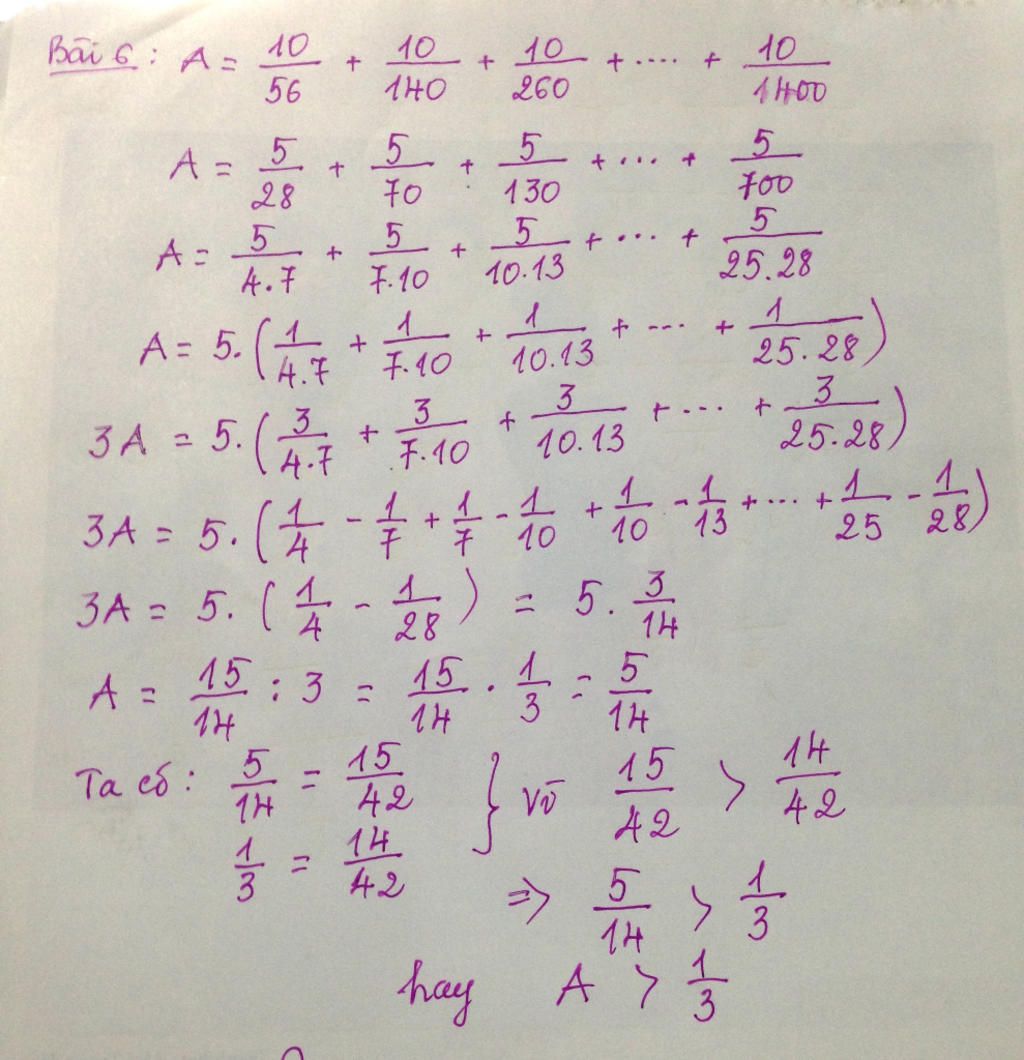 Bài 6 : A = 10/56 + 10/140 + 10/260 + .... + 10/1400
A = 5/28 + 5/70 + 5/130 + ... + 5/700
A = 5/4.7 + 5/7.10 + 5/10.13 + ... + 5/25.28
A = 5.(1/4.7 + 1/7.10 + 1/10.13 + ... + 1/25.28)
3A = 5.(3/4.7 + 3/7.10 + 3/10.13 + ... + 3/25.28)
3A = 5.(1/4 - 1/7 + 1/7 - 1/10 + 1/10 - 1/13 + ... + 1/25 - 1/28)
3A = 5.(1/4 - 1/28) = 5. 3/14
A = 15/14 : 3 = 15/14 . 1/3 = 5/14
Ta có : 5/14 = 15/42 } Vì 15/42 > 14/42
1/3 = 14/42
=> 5/14 > 1/3
hay A > 1/3